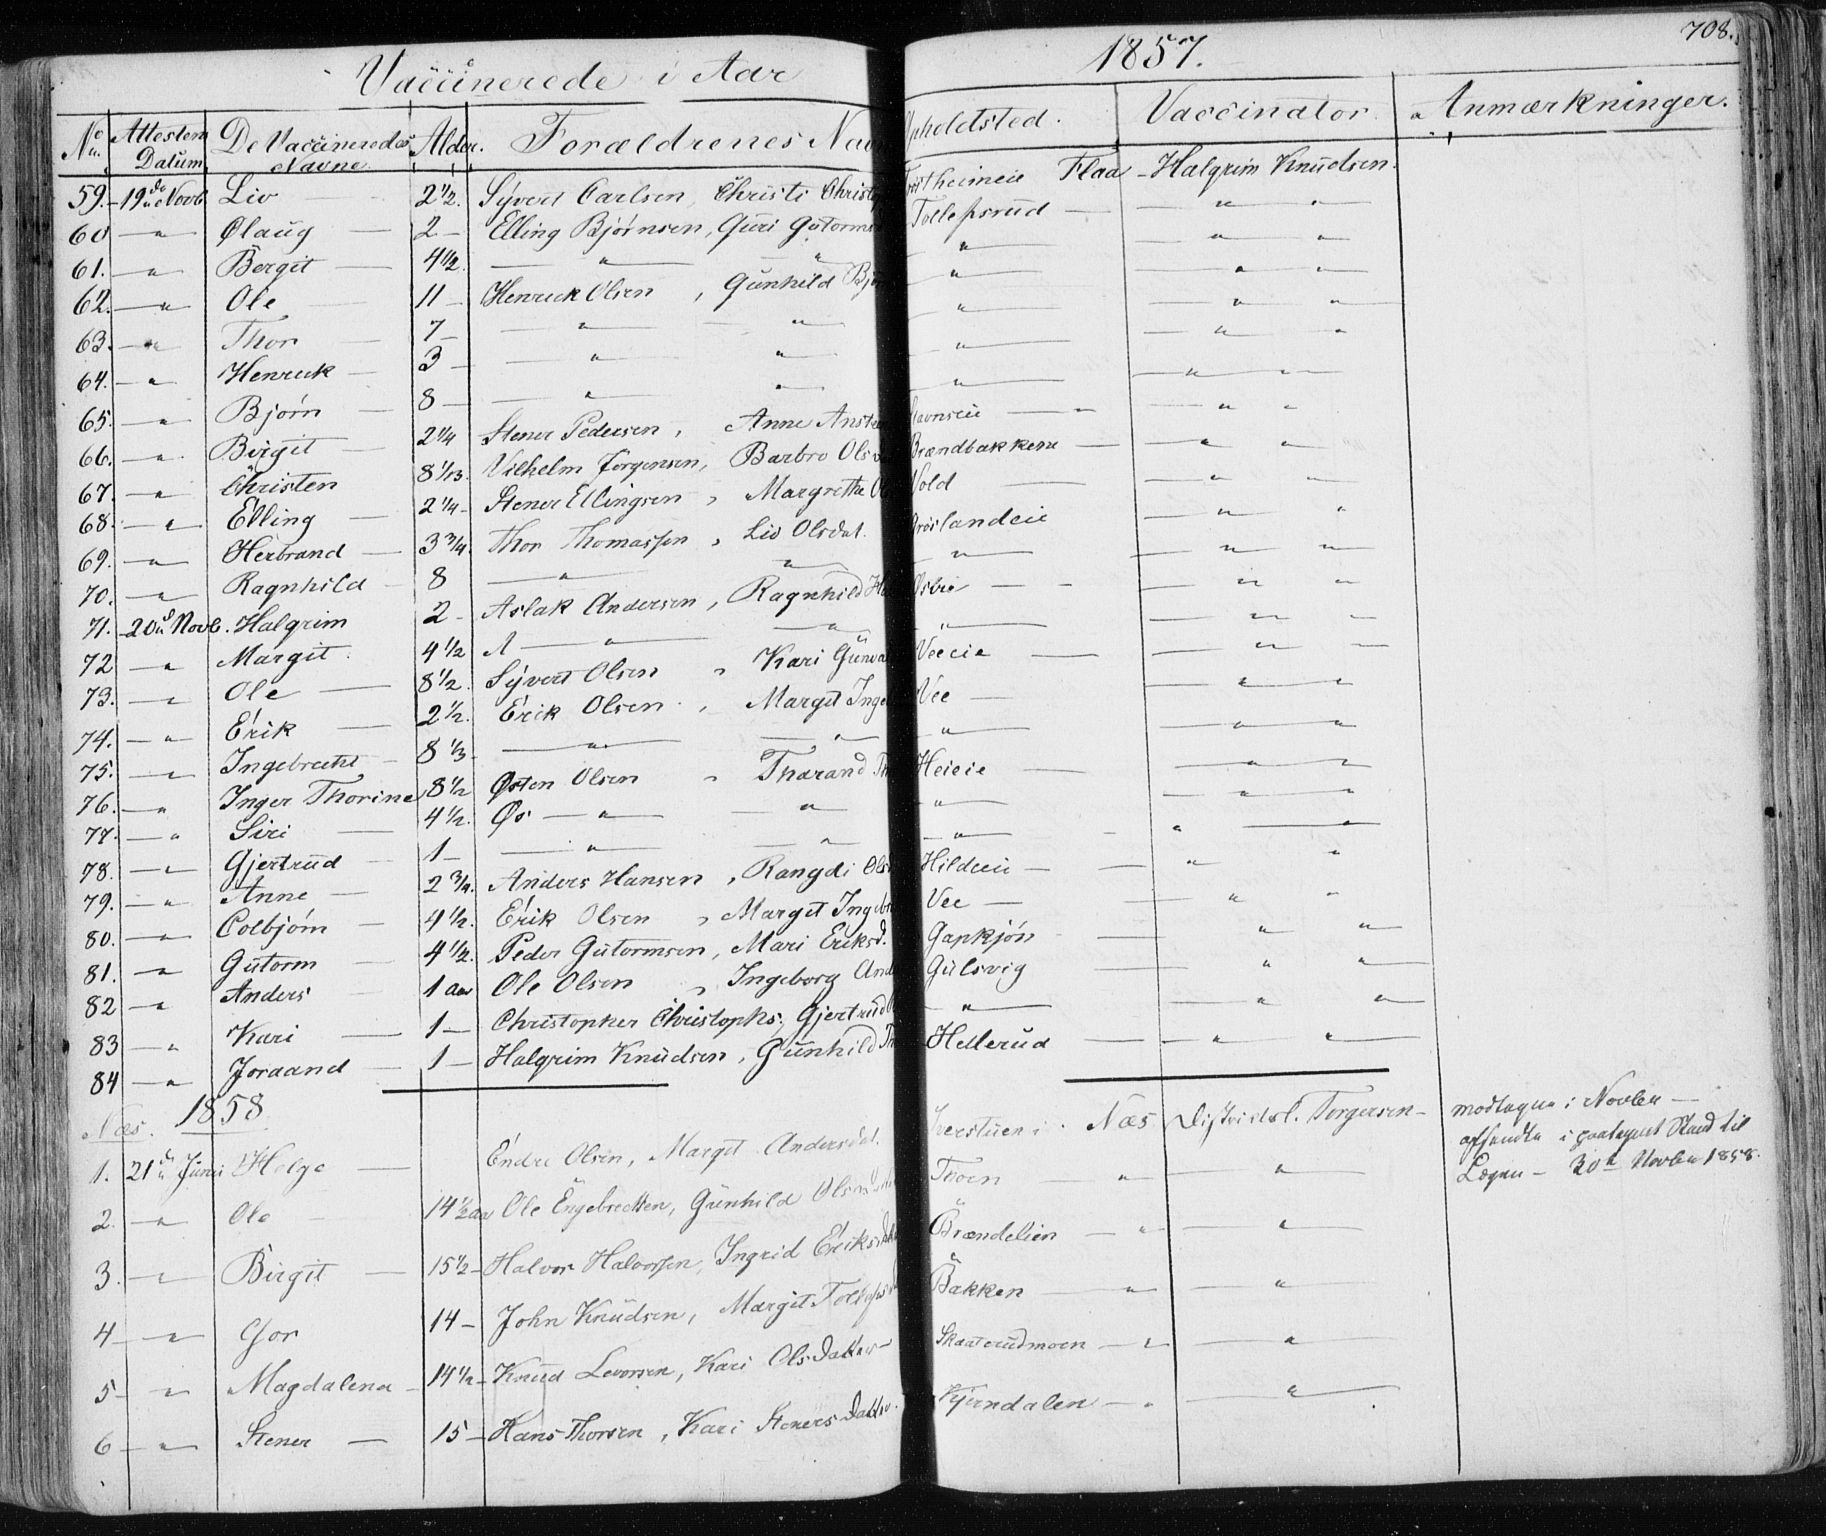 708.
Vaccinerede i Aar 1857.
No. Attestens Datum De Vaccineredes Navne. Alder. Forældrenes Nav pholdtsted. Vaccinator. Anmærkninger.
59. 19de Novb. Liv 2 1/2. Syvert Carlsen, Christi Christ Flaa Halgrim Knudsen.
60 " Ølaug 2 Elling Bjørnsen, Guri Gutorms Tollefsrud " "
61. " Bergit 4 1/2. " " " " "
62. " Ole 11 Henrick Olsen, Gunhild Bjø " " "
63. " Thor 7 " " " " "
64. " Henrick 3 " " " " "
65. " Bjørn 8 " " " " "
66. " Birgit 2 1/4 Stener Pedersen, Anne Anst " "
67. " Christen 8 1/13. Vilhelm Jørgensen, Barbro Ols Brændbakkene " "
68. " Elling 2 1/4 Stener Ellingsen, Margrethe Ol Vold " "
69. " Herbrand 3 3/4. Thor Thomassen, Liv Olsdat. " "
70. " Ragnhild 8 " " " " "
71. 20de Novb. Halgrim 2 Aslak Andersen, Ragnhild " "
72 " Margit. 4 1/2 " " " " "
73. " Ole 8 1/2. Syvert Olsen, Kari Gunva Veeeie " "
74. " Erik 2 1/2. Erik Olsen, Margit Inge Vee " "
75. " Ingebrecht 8 1/3 " " " " "
76. " Inger Thorine 8 1/2 Østen Olsen, Thorand Th Heieie " "
77. " Siri 4 1/2. Øs " " " " "
78. " Gjertrud 1 " " " " "
79. " Anne 2 3/4. Anders Hansen, Rangdi Ols Hildeeie " "
80. " Colbjørn 4 1/2. Erik Olsen, Margit Ingebr Vee " "
81. " Gutorm 4 1/2. Peder Gutormsen, Mari Eriksd. Gapkjøn " "
82 " Anders 1 aar Ole Olsen, Ingeborg And Gulsvig " "
83 " Kari 1 Christopher Christophs, Gjertrud " " "
84 " Joraand 1 Halgrim Knudsen, Gunhild Th Hellerud " "
Næs. 1858
1. 21de Juni Helge Endre Olsen, Margit Andersdat. Næs Distriktsl. Torgersen modtagne i Novber
afsendte i paategnet Stand til
Lægen 30te Novber 1858.
2. " Ole 14 1/2 aar Ole Engebretsen, Gunhild Olsd Thoen " "
3. " Birgit 15 1/2 Halvor Halvorsen, Ingrid Eriksd Brændelien " "
4 " Gor 14 John Knudsen, Margit Tollefsd Bakken " "
5 " Magdalena 14 1/2 Knud Levorsen, Kari Olsdatter Skaaterudmoen " "
6 " Stener 15 Hans Thorsen, Kari Stenersdatter. Kjerndalen " "